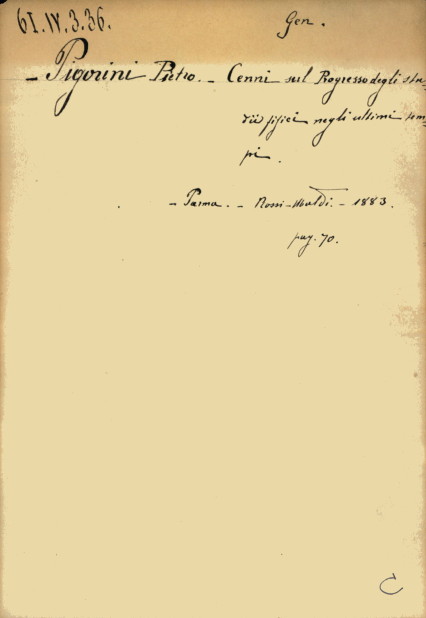 61.IV.3.36.
Gen.
- Pigorini Pietro. - Cenni sul Progresso degli stu-
dii fisici negli ultimi tem-
pi.
- Parma. - Rossi-Ubaldi. - 1883.
pag. 70.
C